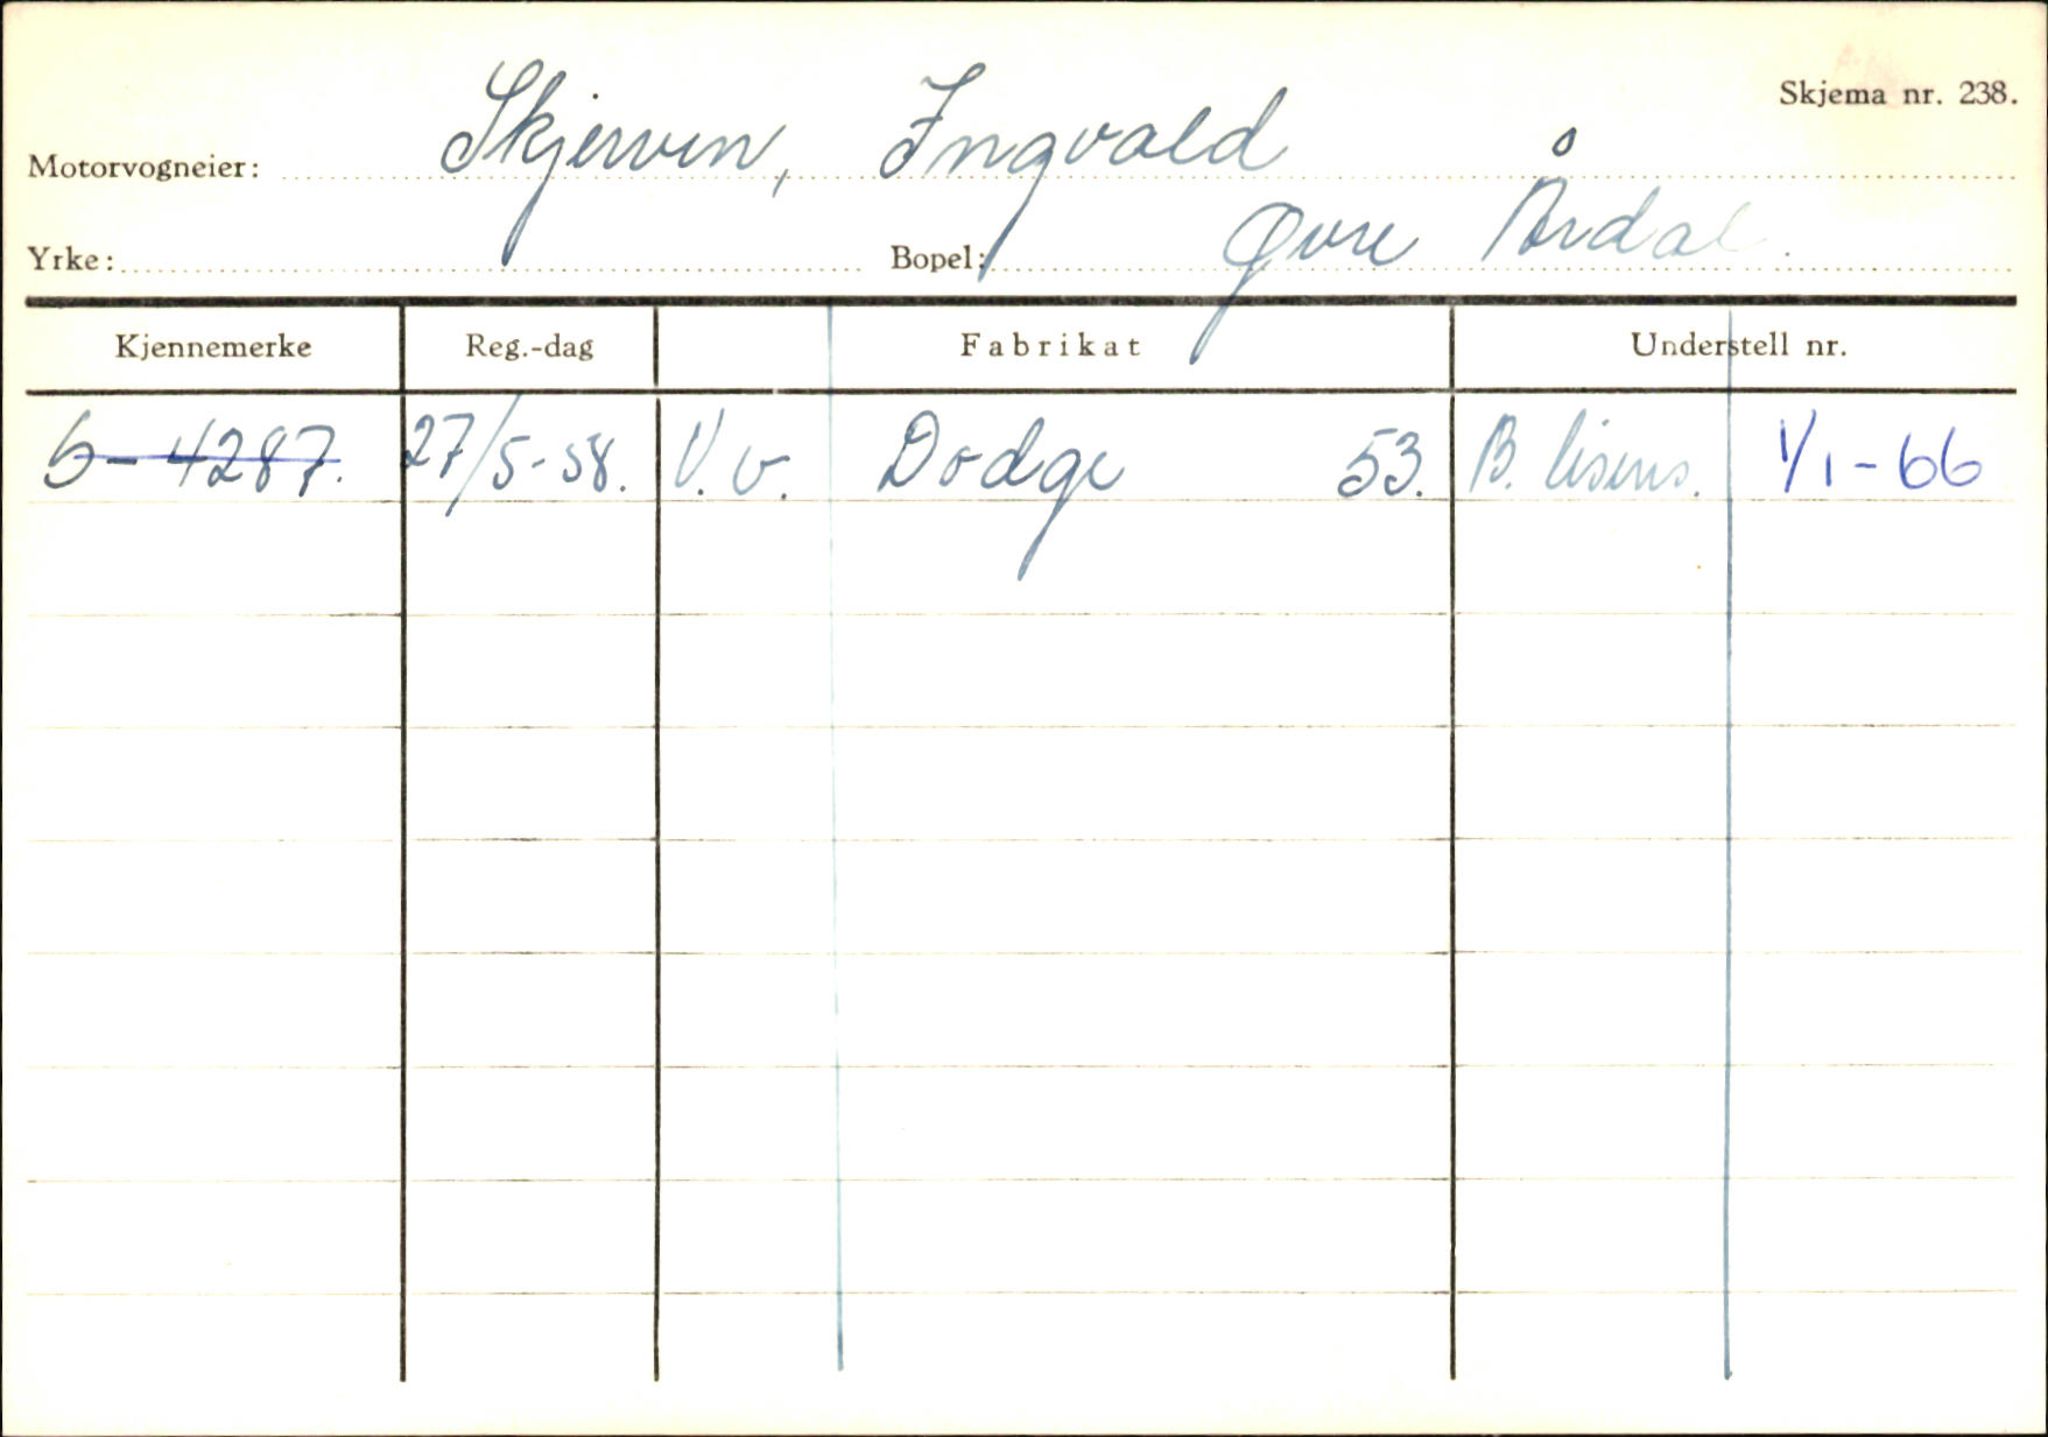 Skjema nr. 238.
Motorvogneier: Skjerven, Ingvald
Yrke: Bopel: Øvre Årdal.
Kjennemerke Reg.-dag Fabrikat Understell nr.
S-4287. 27/5-58. V.v. Dodge 53. B. lisens. 1/1-66